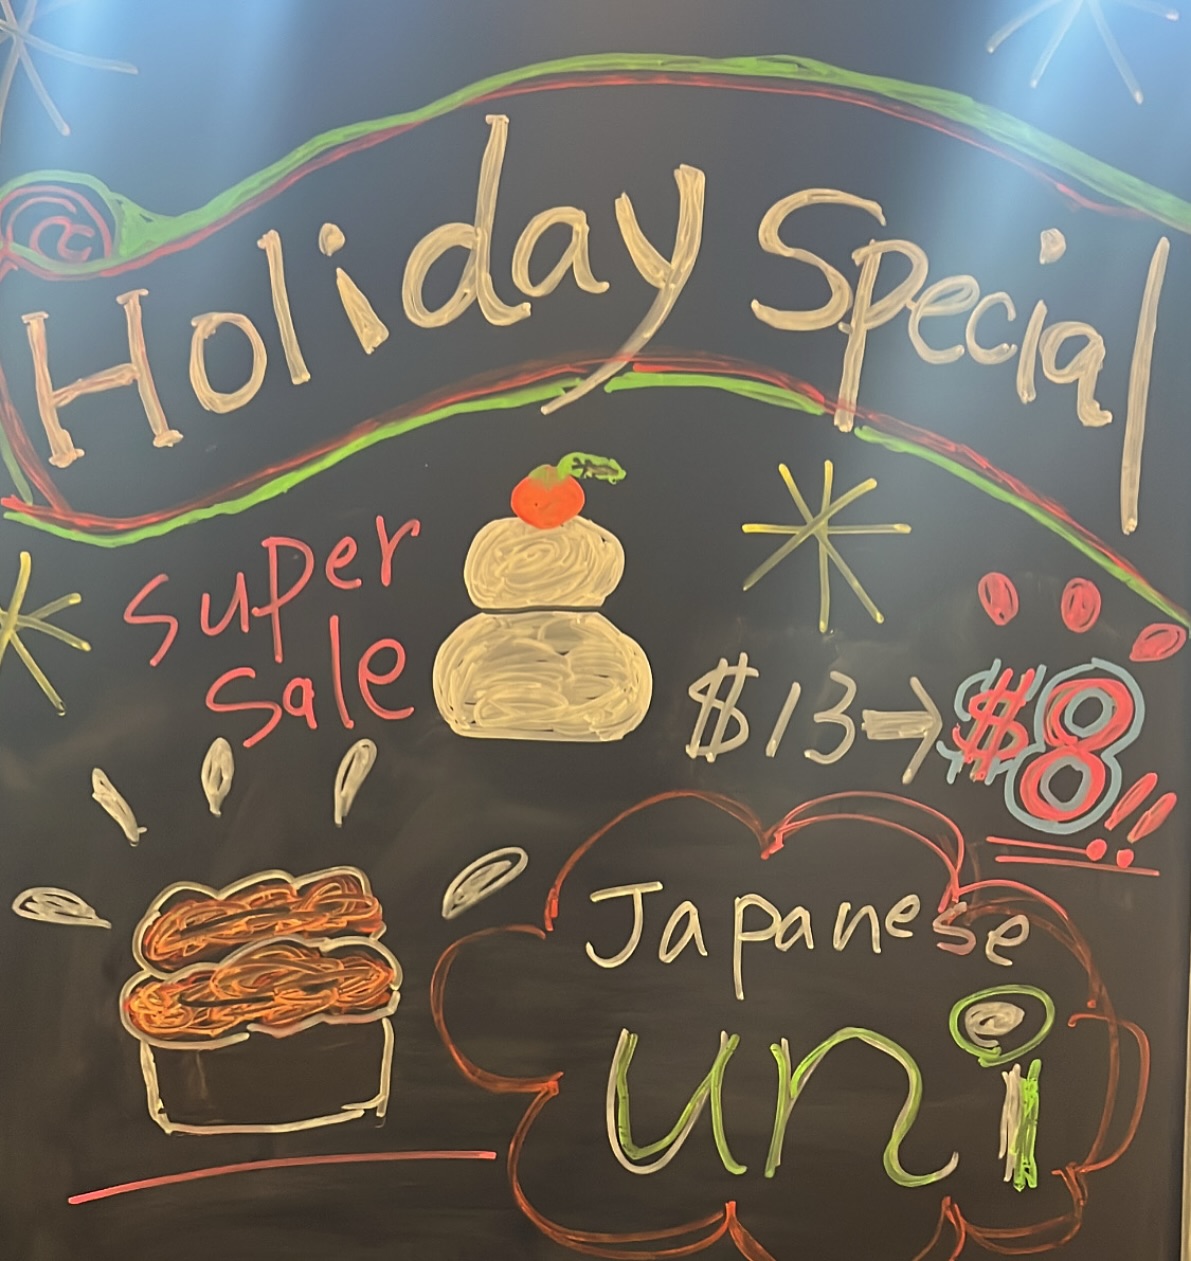 Holiday Special
super
sale
$13→$8!!
Japanese
uni